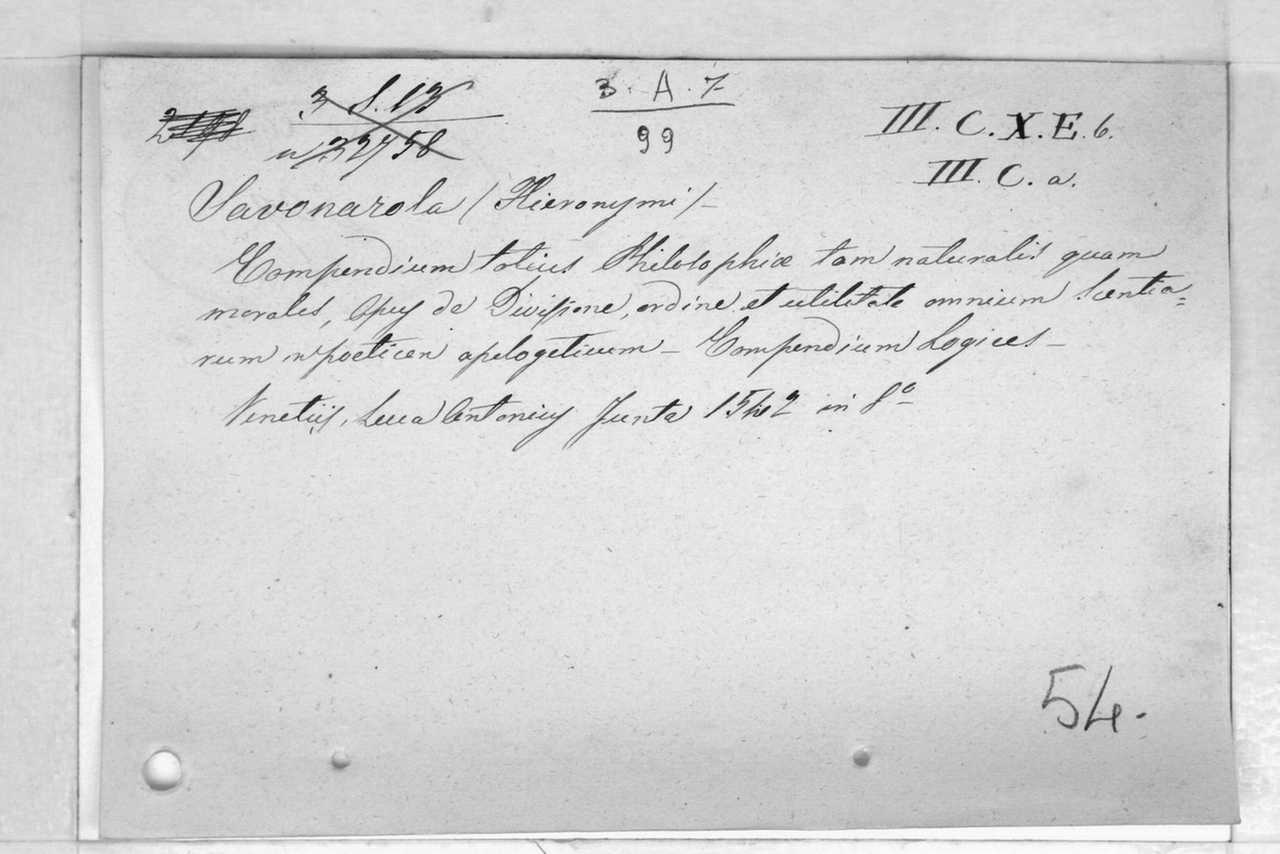 3. A. 7
99
III. C. X. E. 6.
III. C. a.
Savonarola (Hieronymi) –
Compendium totius Philosophiæ tam naturalis quam
morales, Opus de Divisione, ordine, et utilitate omnium Scentia=
rum poeticen apologeticum – Compendium Logices –
Venetiis, Luca Antonius Junta 1542 in 8º
54.